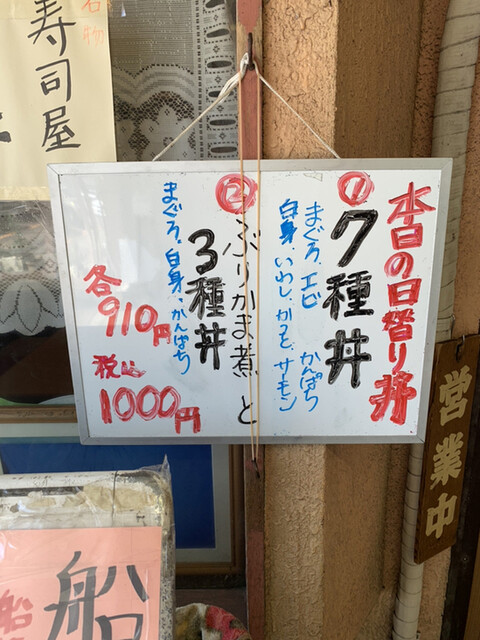 本日の日替り丼
①
7種丼
まぐろ、エビ かんぱち
白身、いわし、かつを、サーモン
②
ぶりかま煮と
3種丼
まぐろ、白身、かんぱち
各910円
税込
1000円
営業中
名物
寿司屋
船
船